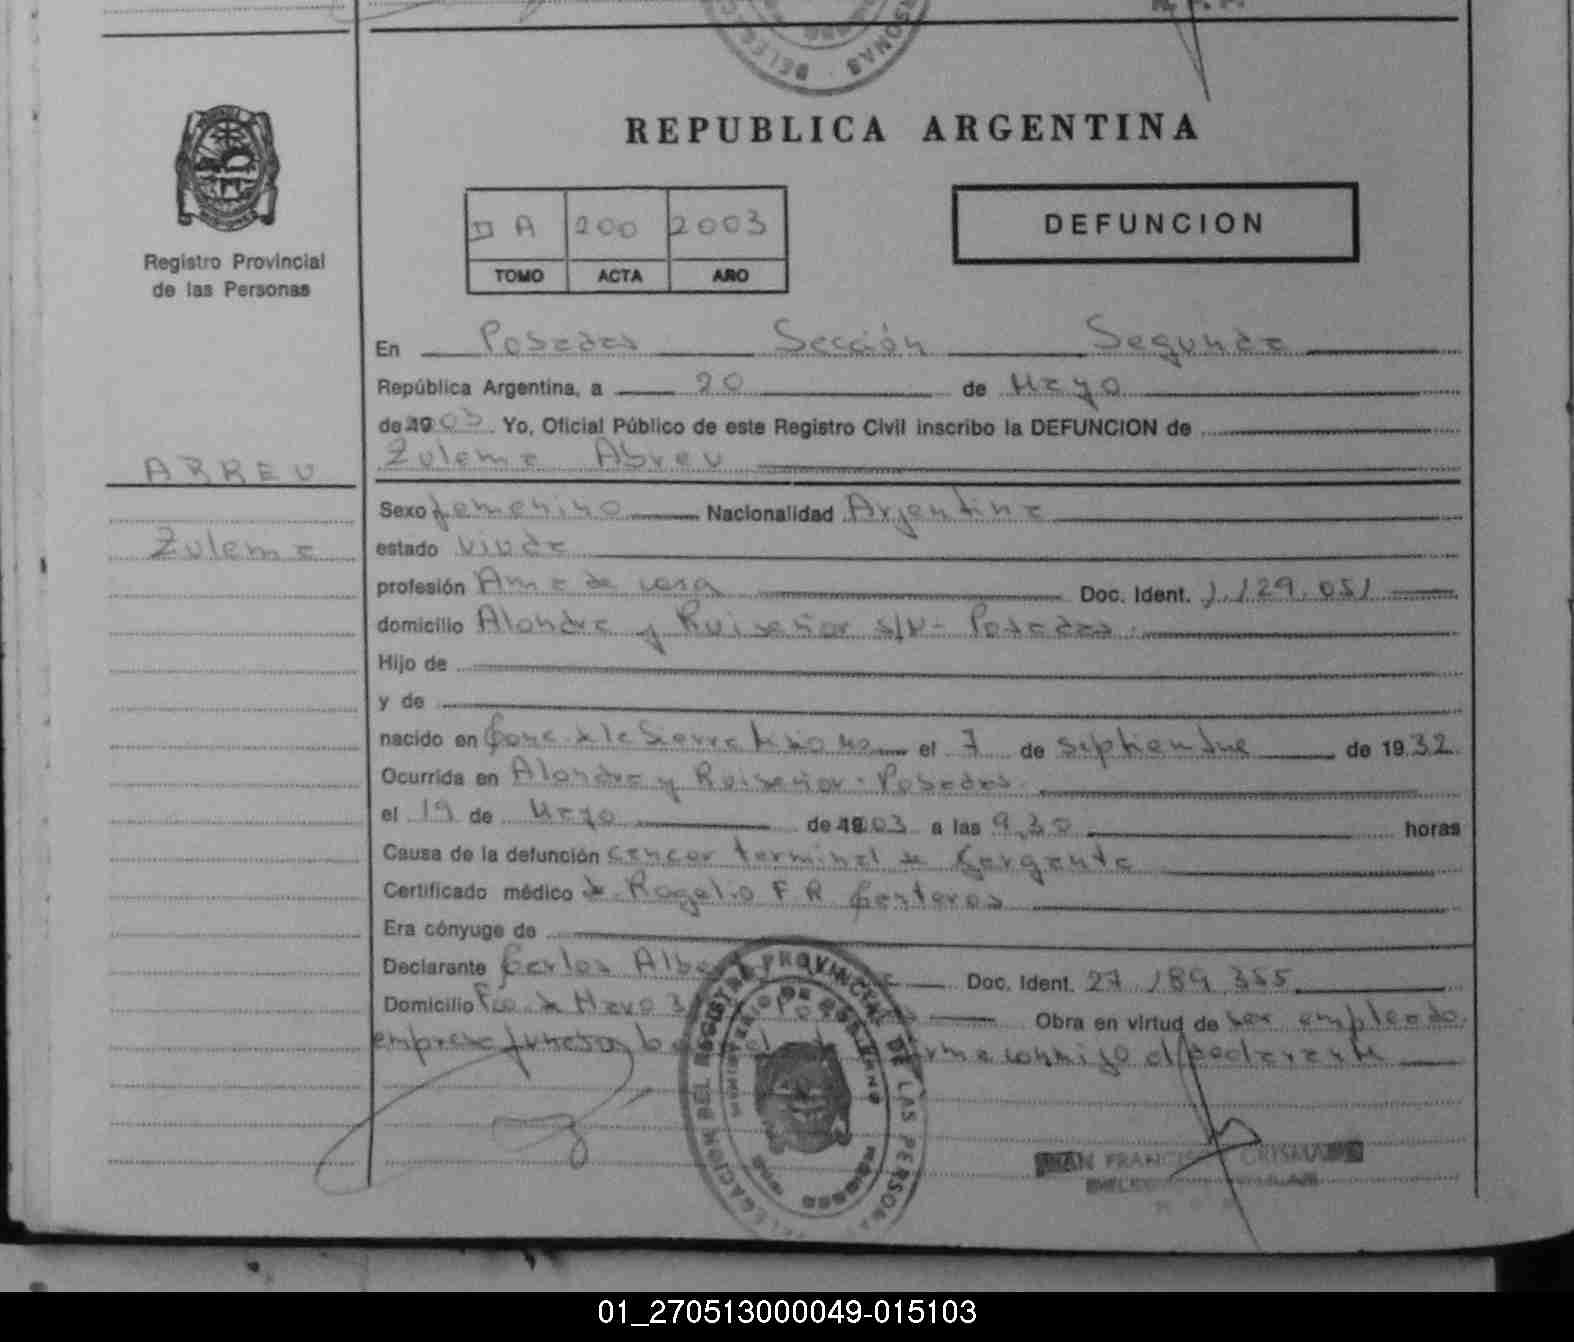 REPUBLICA ARGENTINA
Registro Provincial
de las Personas
D A 200 2003
TOMO ACTA AÑO
DEFUNCION
En Posadas Sección Segunda
República Argentina, a 20 de Mayo
de 19 03. Yo, Oficial Público de este Registro Civil inscribo la DEFUNCION de
ABREU
Zulema Abreu
Zulema
Sexo femenino Nacionalidad Argentina
estado viuda
profesión Ama de casa Doc. Ident. 1.129.051
domicilio Alondra y Ruiseñor s/N - Posadas.
Hijo de
y de
nacido en Conc. de la Sierra Misiones el 7 de septiembre de 19 32.
Ocurrida en Alondra y Ruiseñor - Posadas.
el 19 de Mayo de 19 03 a las 9,30 horas
Causa de la defunción cancer terminal de Garganta
Certificado médico de Rogelio F R Canteros
Era cónyuge de
Declarante Carlos Doc. Ident. 27.189.355
Domicilio Fco. de Haro Obra en virtud de ser empleado
empresa conmigo el declarante
DELEGACION DEL REGISTRO PROVINCIAL DE LAS PERSONAS
MINISTERIO DE GOBIERNO
JUAN FRANCISCO
01_270513000049-015103